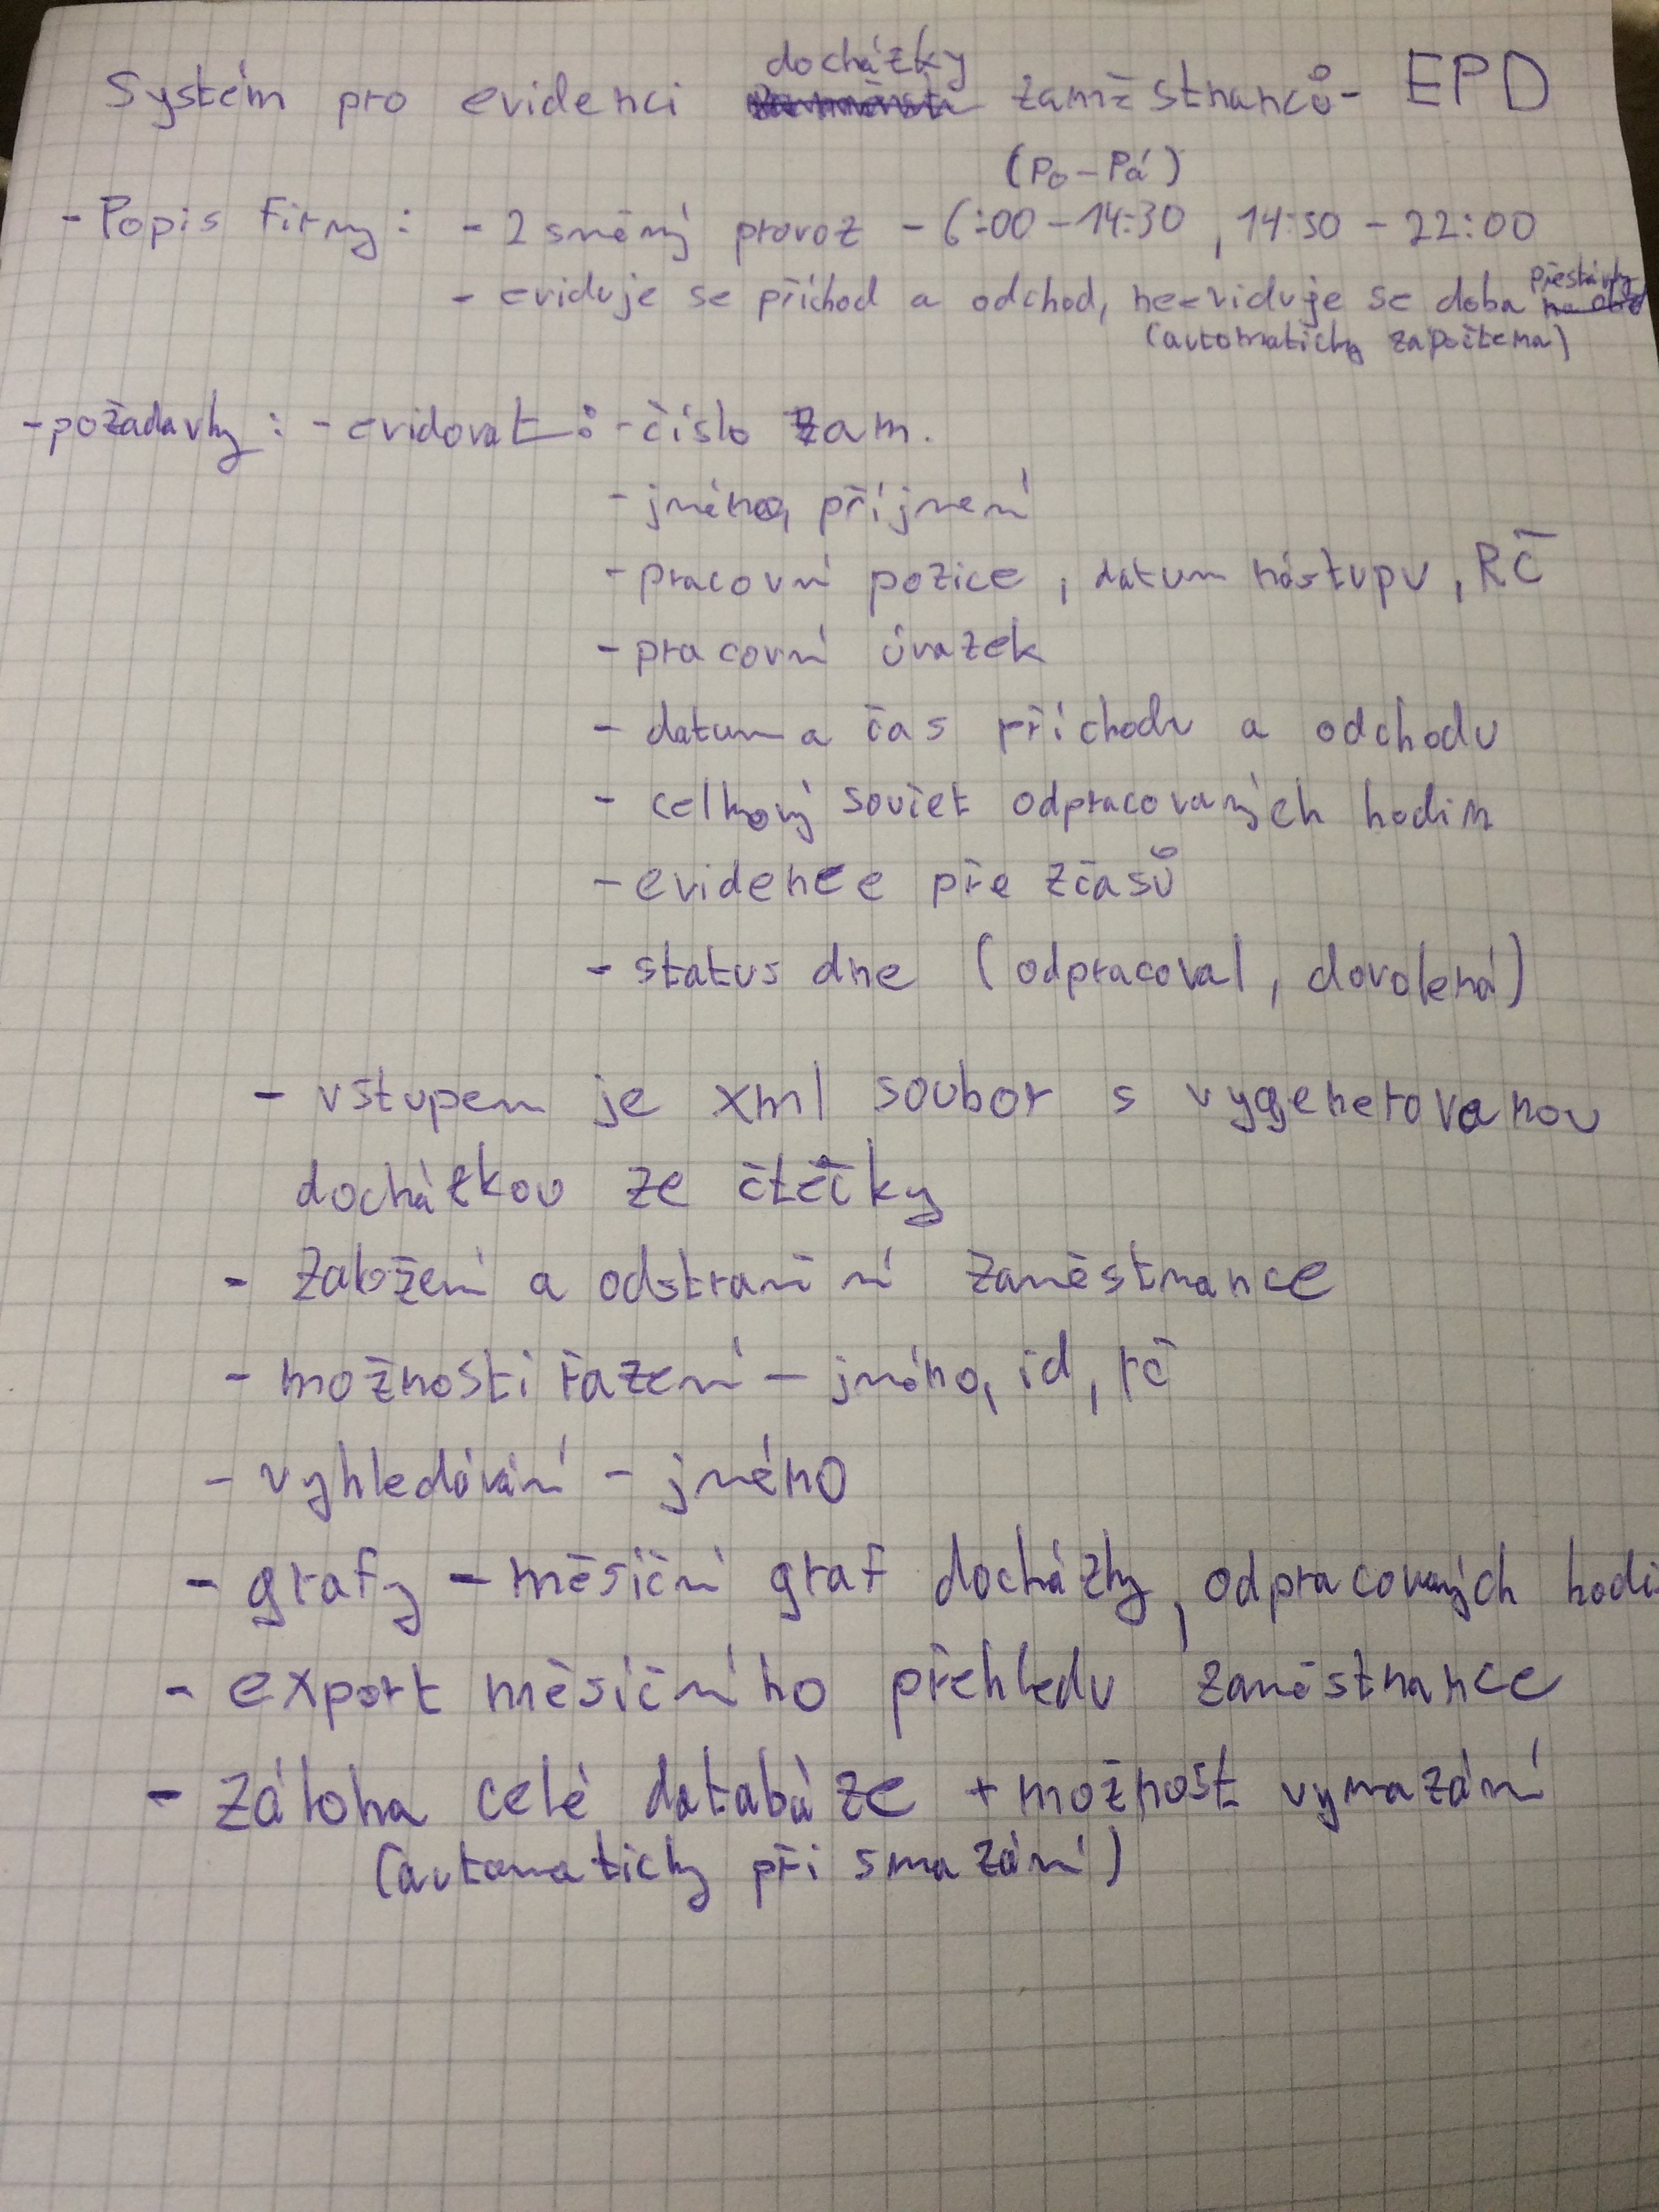 Systém pro evidenci docházky zaměstnanců - EPD
(Po - Pá)
- Popis firmy : - 2 směný provoz - 6:00 - 14:30 , 14:30 - 22:00
- eviduje se příchod a odchod, neeviduje se doba přestávky
(automaticky započtena)
- požadavky : - evidovat : - číslo zam.
- jméno, příjmení
- pracovní pozice , datum nástupu , RČ
- pracovní úvazek
- datum a čas příchodu a odchodu
- celkový součet odpracovaných hodin
- evidence přezčasů
- status dne (odpracoval, dovolená)
- vstupem je xml soubor s vygenerovanou
docházkou ze čtečky
- založení a odstranění zaměstnance
- možnosti řazení - jméno, id, rč
- vyhledávání - jméno
- grafy - měsíční graf docházky, odpracovaných hodi
- export měsíčního přehledu zaměstnance
- záloha celé databáze + možnost vymazání
(automaticky při smazání)